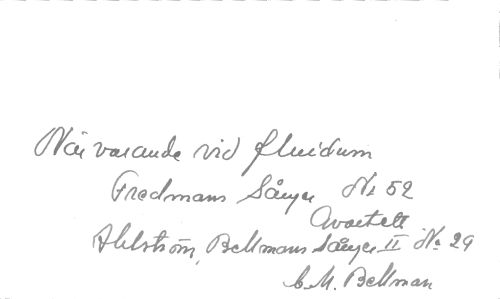 När varande vid fluidum
Fredmans Sånger No 52
Ahlström, Bellmans Sånger II No 29
C.M. Bellman